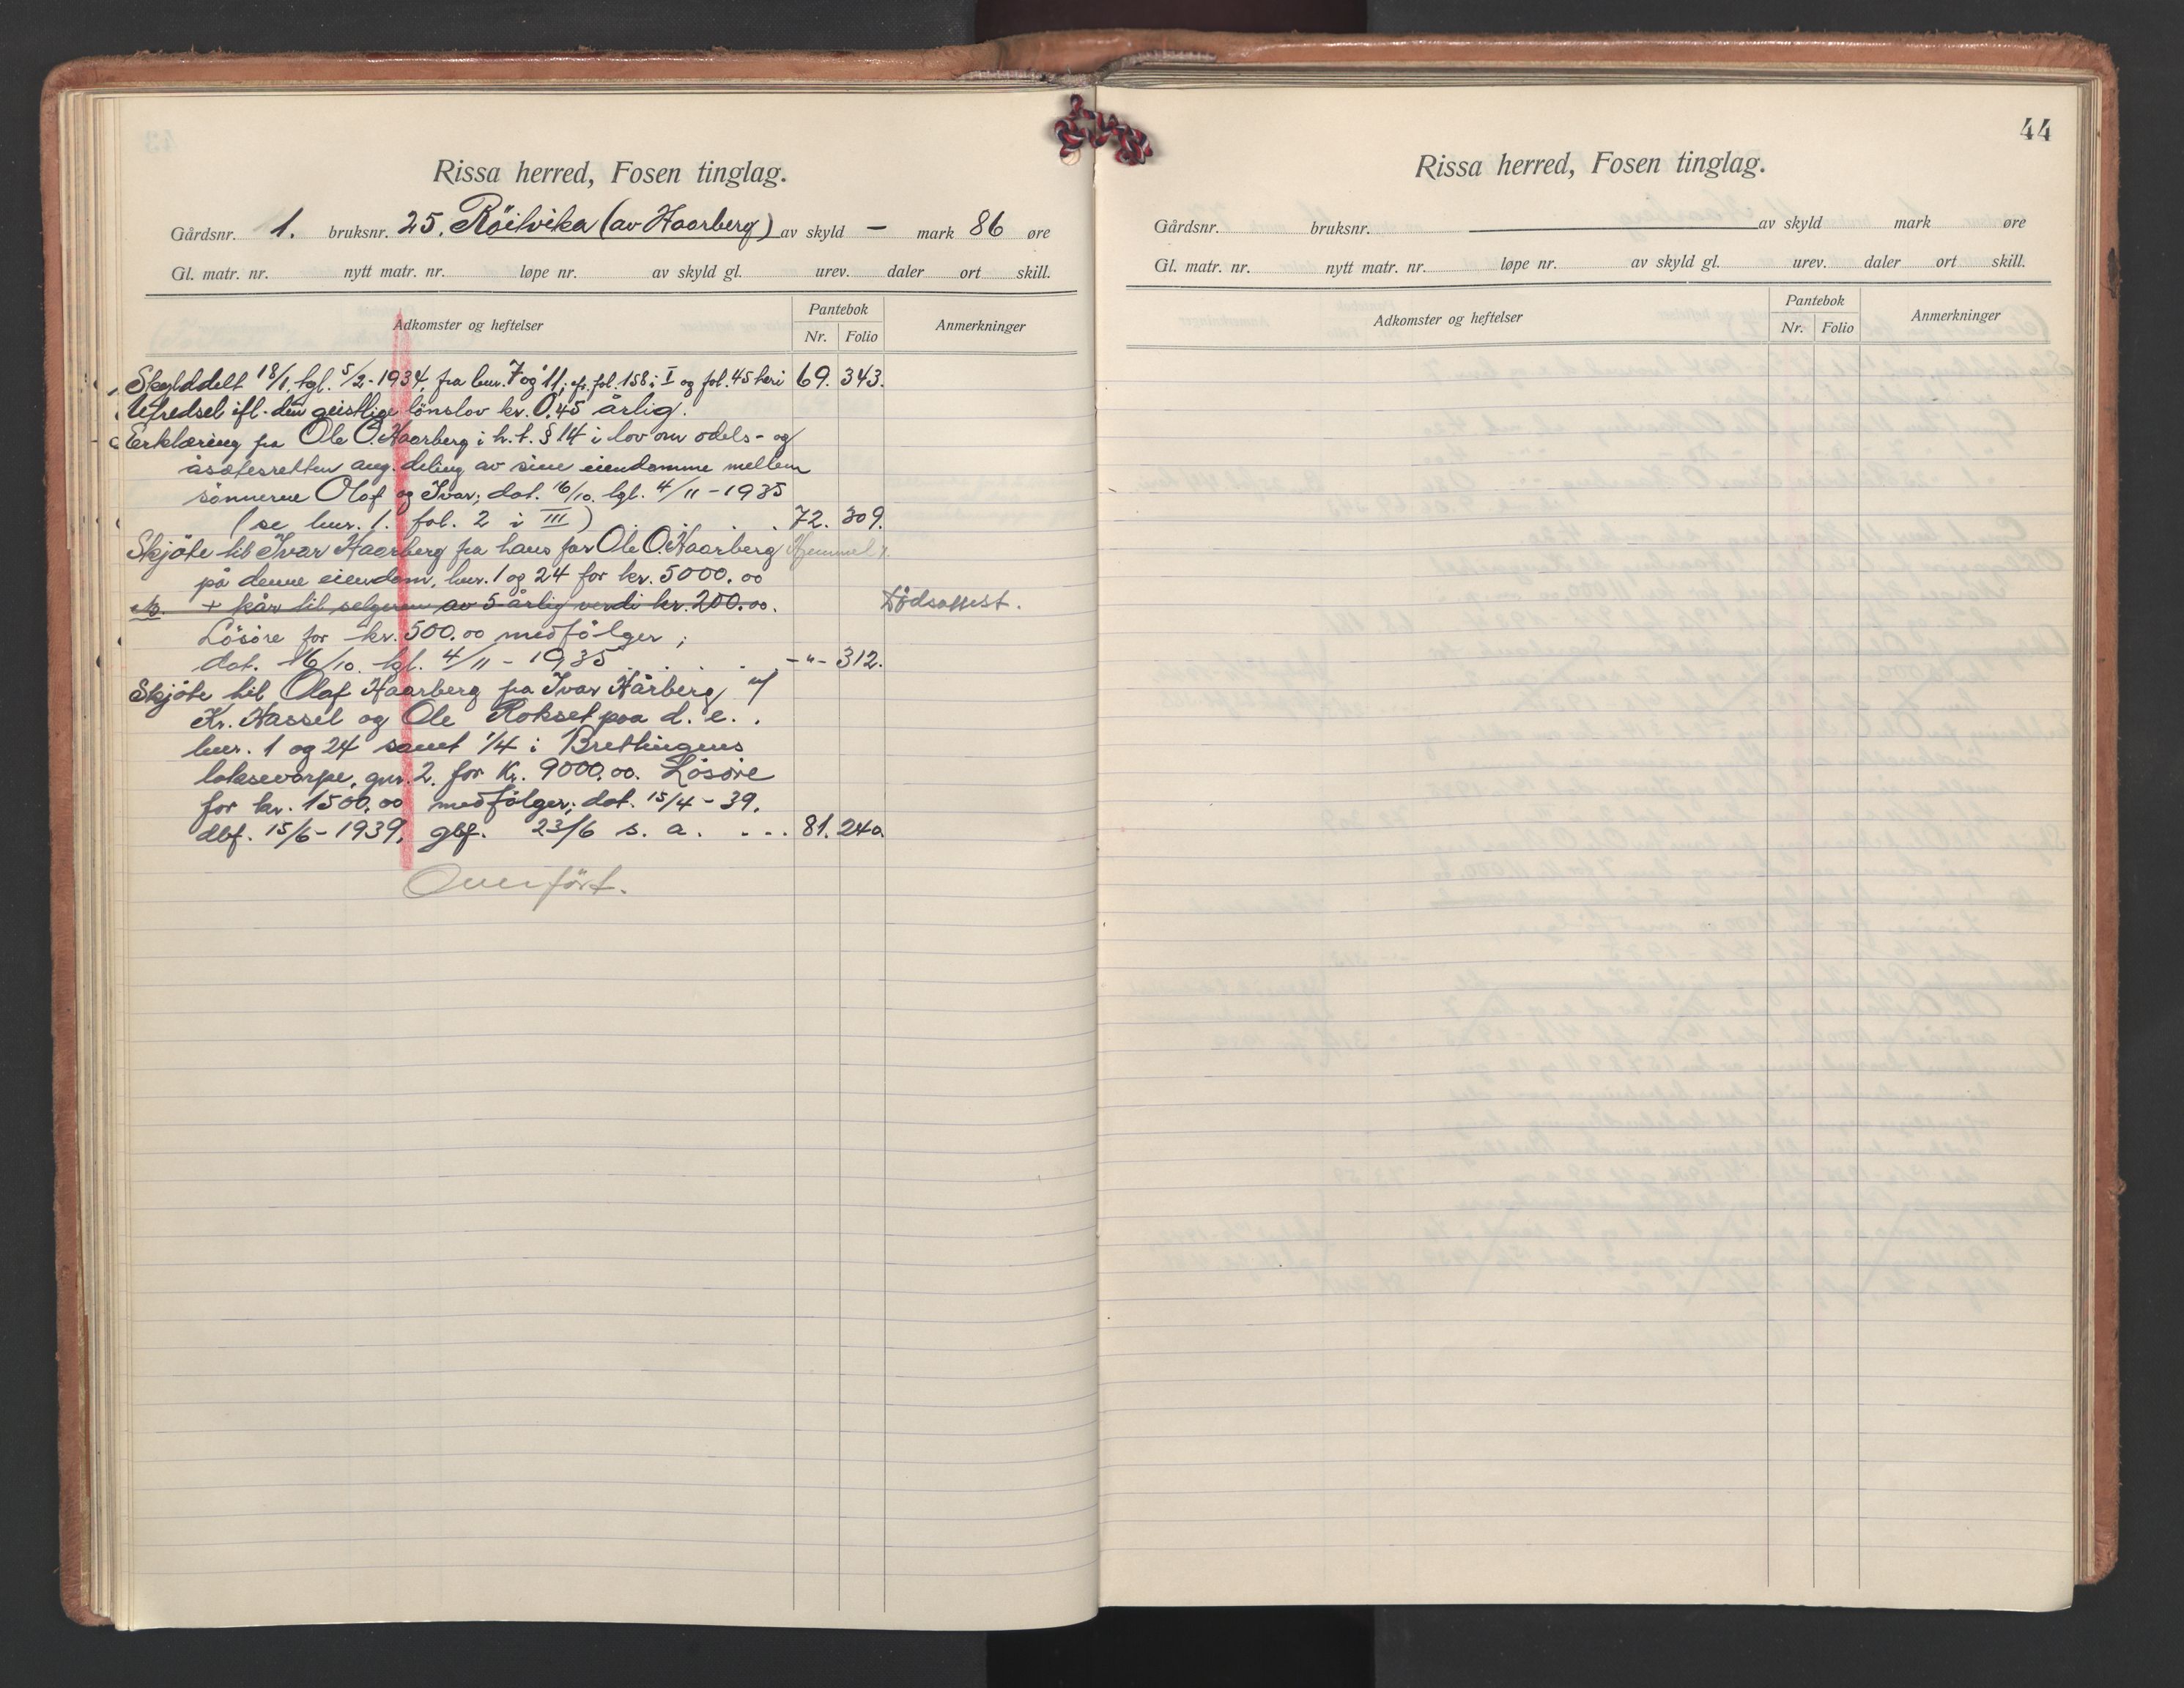 Rissa herred, Fosen tinglag.
Gårdsnr. 1. bruksnr. 25. Röilvika (av Haarberg) av skyld - mark 86 øre
Gl. matr. nr. nytt matr. nr. løpe nr. av skyld gl. urev. daler ort skill.
Adkomster og heftelser Pantebok Nr. Folio Anmerkninger
Skylddelt 18/1, tgl. 5/2-1934, fra bnr. 7 og 11; cfr. fol. 158 i I og fol. 45 heri 69. 343.
Utredsel ifl. den geistlige lönslov kr. 0.45 årlig.
Erklæring fra Ole O. Haarberg i h. t. § 14 i lov om odels- og
åsætesretten ang. deling av sine eiendomme mellem
sønnerne Olaf og Ivar; dat. 16/10. tgl. 4/11-1935
(se bnr. 1. fol. 2 i III) . . . . 72. 309.
Skjöte til Ivar Haarberg fra hans far Ole O. Haarberg Hjemmel
på denne eiendom, bnr. 1 og 24 for kr. 5000.00
+ kår til selgeren av 5-årlig verdi kr. 200.00. Dødsattest.
Lösöre for kr. 500.00 medfölger;
dat. 16/10. tgl. 4/11-1935 . . . . -"- 312.
Skjöte til Olaf Haarberg fra Ivar Hårberg v/
Kr. Hassel og Ole Rokset paa d. e.,
bnr. 1 og 24 samt 1/4 i Brettingens
laksevarpe, gnr. 2. for Kr. 9000.00. Lösöre
for kr. 1500.00 medfölger; dat. 15/4-39.
dbf. 15/6-1939, gbf. 23/6 s. a. . . . 81. 240.
Overfört.
44
Rissa herred, Fosen tinglag.
Gårdsnr. bruksnr. av skyld mark øre
Gl. matr. nr. nytt matr. nr. løpe nr. av skyld gl. urev. daler ort skill.
Adkomster og heftelser Pantebok Nr. Folio Anmerkninger